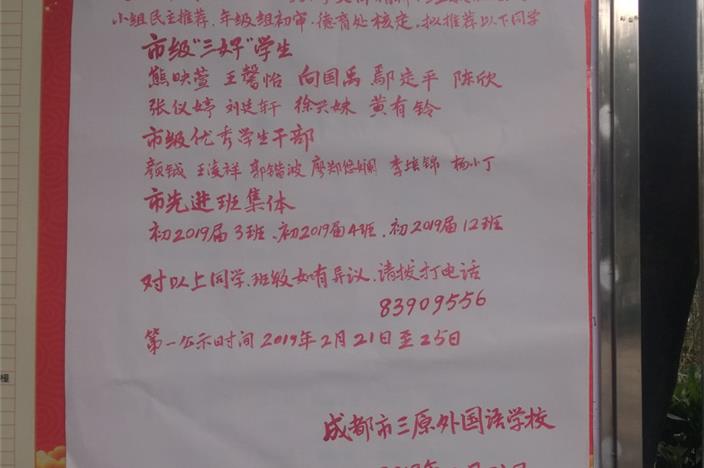 小组民主推荐、年级组初审、德育处核定、拟推荐以下同学
市级"三好"学生
熊映萱 王馨怡 向国禹 鄢定平 陈欣
张仪婷 刘廷轩 徐兴妹 黄有铃
市级优秀学生干部
颜钺 王浚祥 郭锴波 廖郑悠斓 李培锦 杨小丁
市先进班集体
初2019届3班、初2019届4班、初2019届12班
对以上同学、班级如有异议、请拨打电话
83909556
第一公示时间 2019年2月21日至25日
成都市三原外国语学校